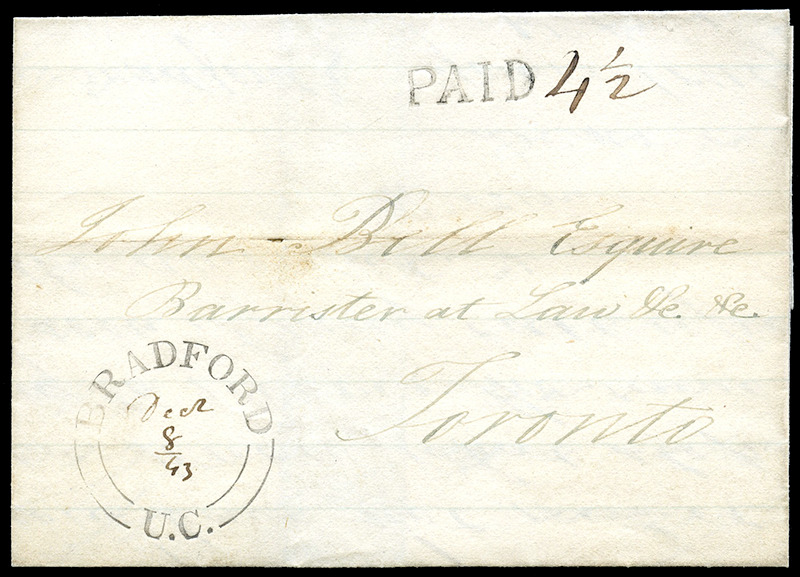 PAID 4 1/2
John Bell Esquire
Barrister at Law &c. &c.
Toronto
BRADFORD
Decr
8
43
U.C.